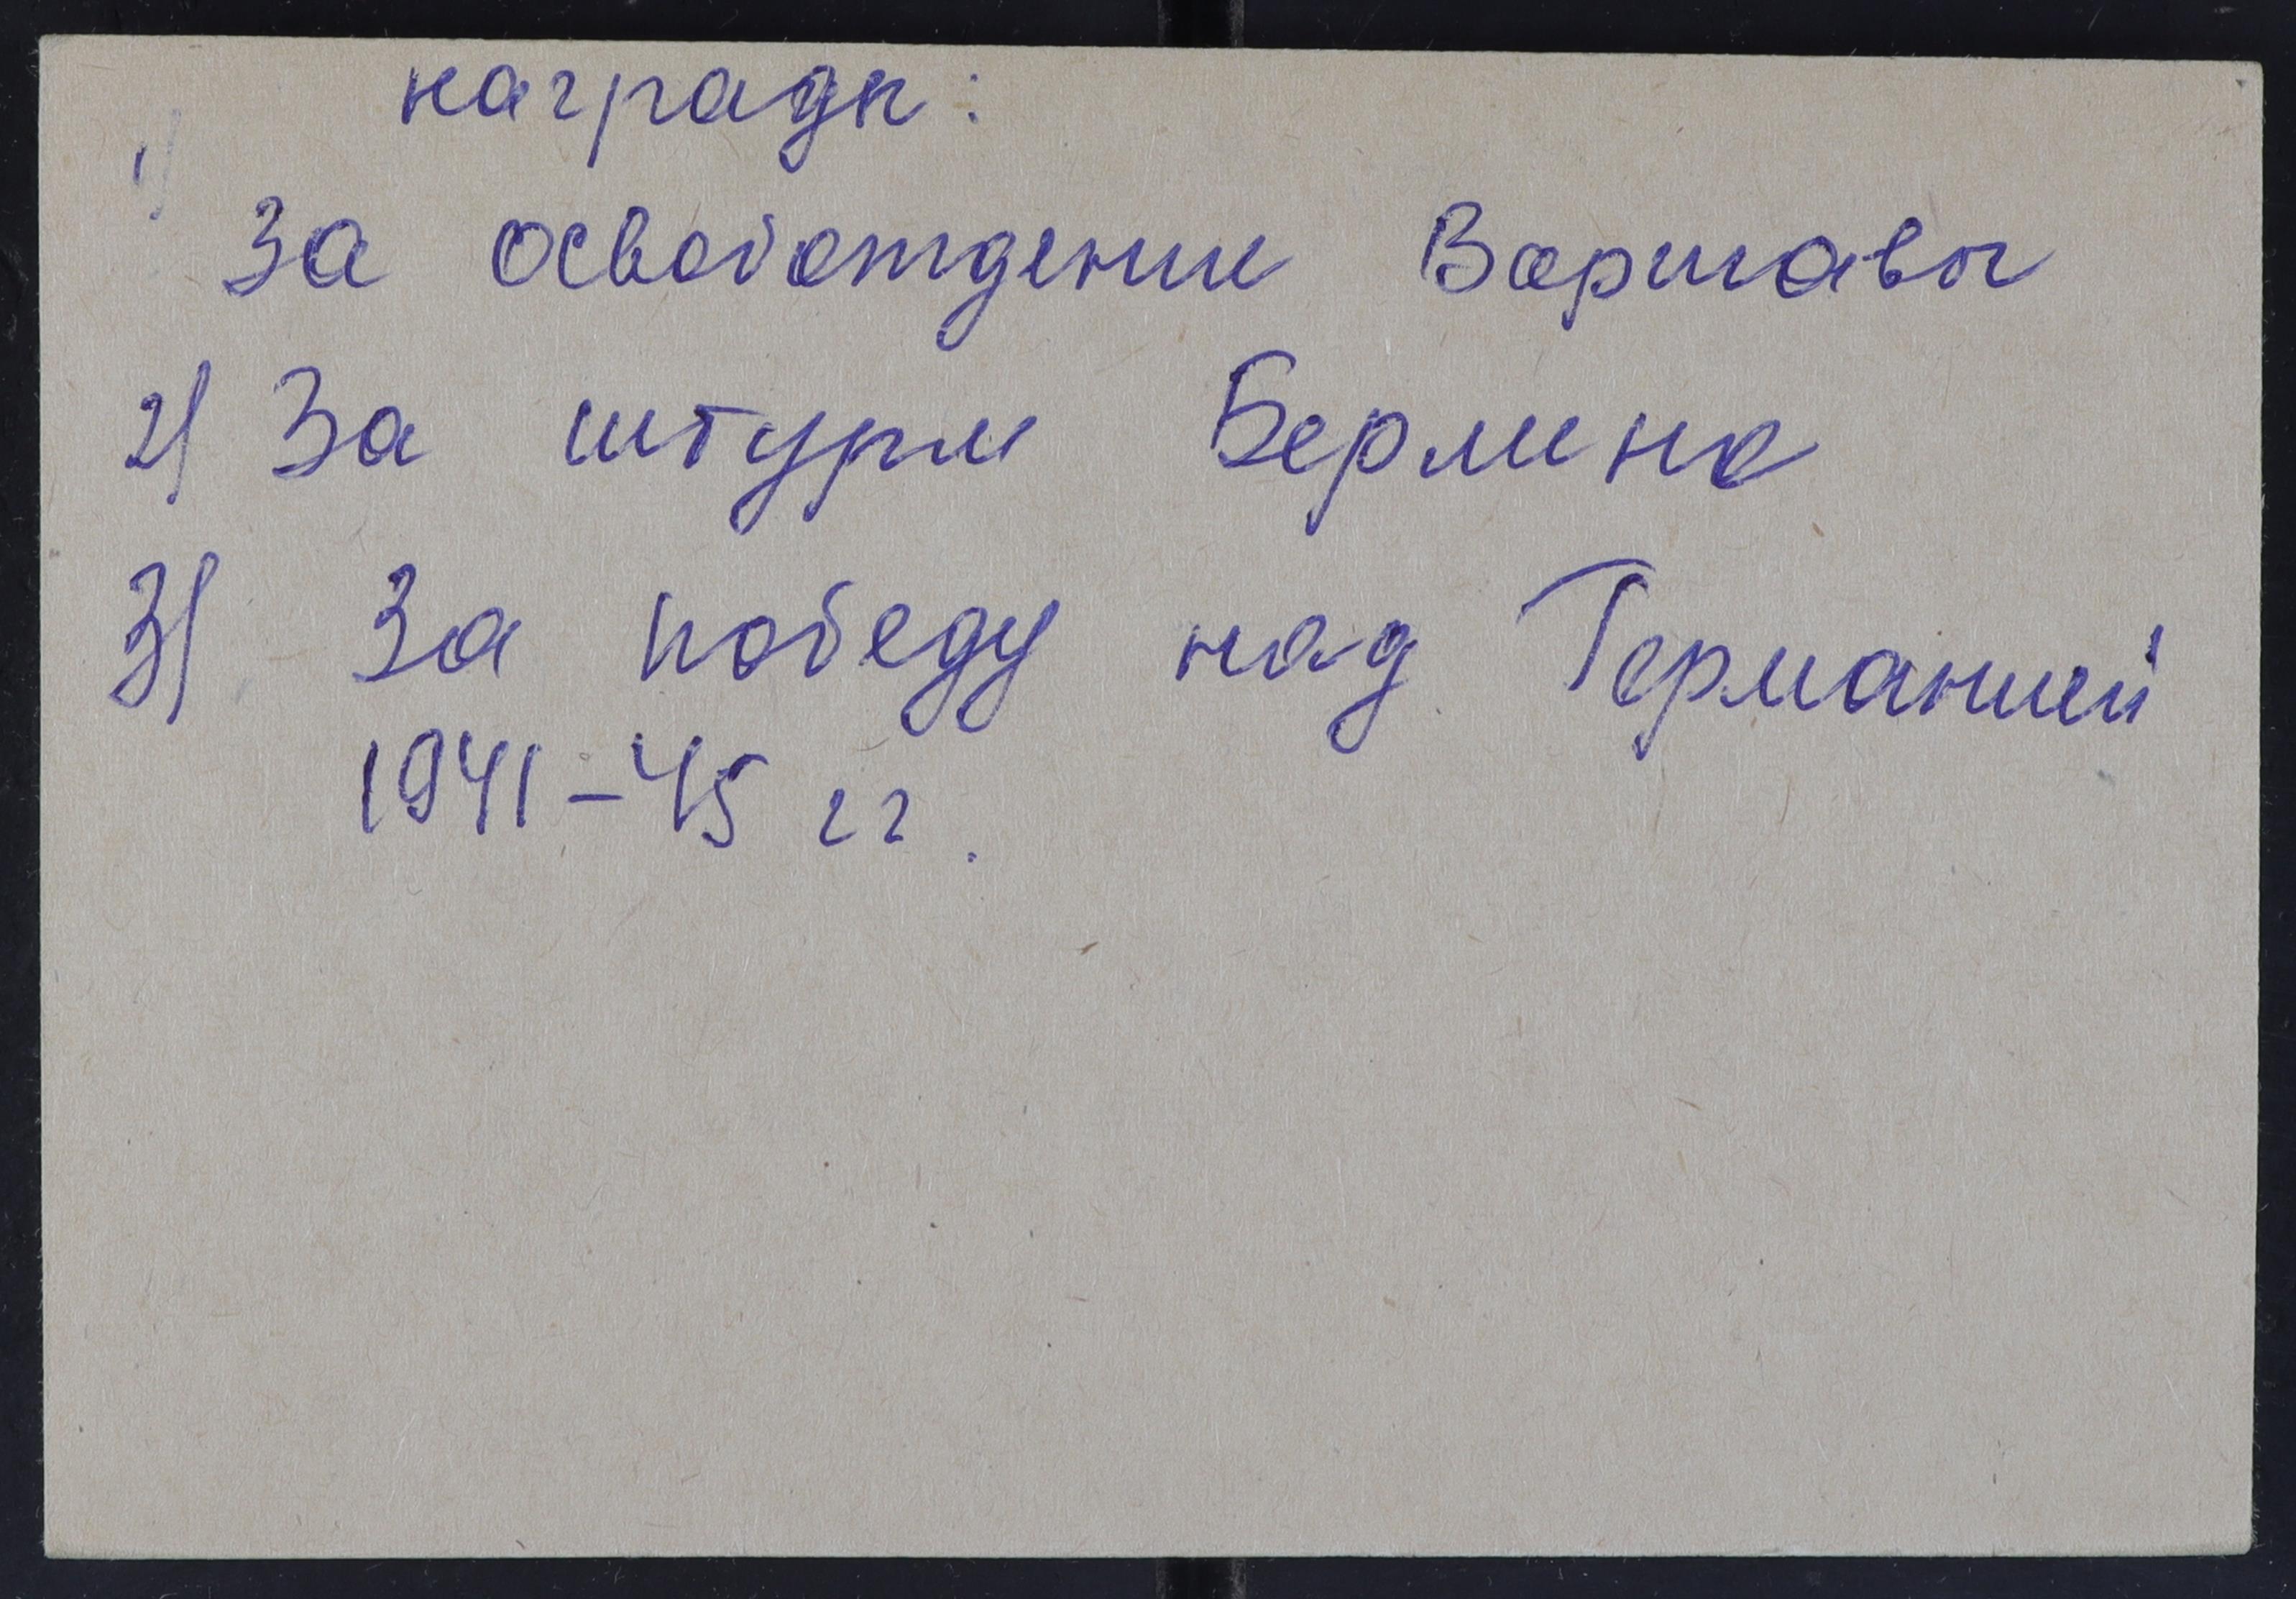 награды:
1)
За освобождение Варшавы
2) За штурм Берлина
3) За победу над Германией
1941-45 гг.